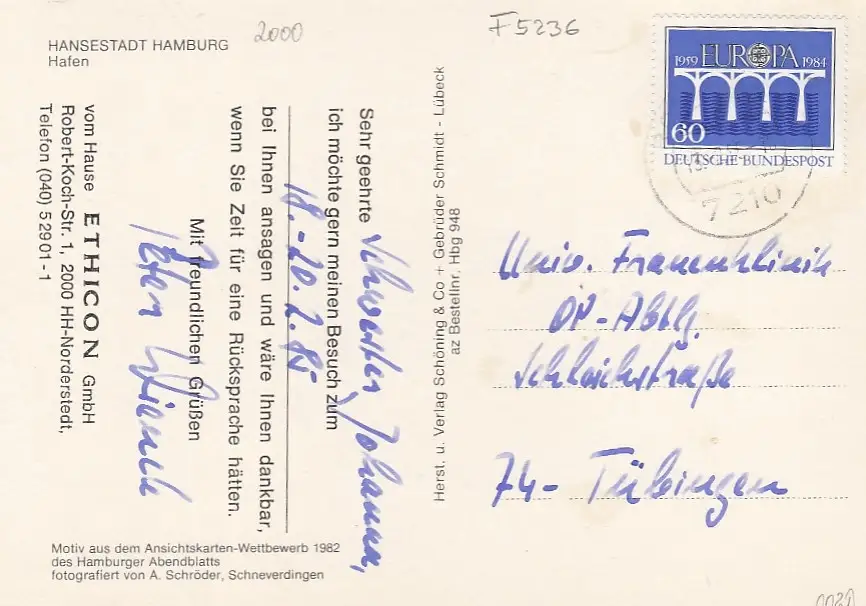 HANSESTADT HAMBURG
Hafen
2000
F5236
1959 EUROPA 1984
60
DEUTSCHE BUNDESPOST
7210
Sehr geehrte Schwester Johanna,
ich möchte gern meinen Besuch zum
18.-20.2.85
bei Ihnen ansagen und wäre Ihnen dankbar,
wenn Sie Zeit für eine Rücksprache hätten.
Mit freundlichen Grüßen
Peter
vom Hause ETHICON GmbH
Robert-Koch-Str. 1, 2000 HH-Norderstedt,
Telefon (040) 5 29 01 - 1
Motiv aus dem Ansichtskarten-Wettbewerb 1982
des Hamburger Abendblatts
fotografiert von A. Schröder, Schneverdingen
Herst. u. Verlag Schöning & Co + Gebrüder Schmidt - Lübeck
az Bestellnr. Hbg 948
Univ. Frauenklinik
OP-Abtlg.
Schleichstraße
74- Tübingen